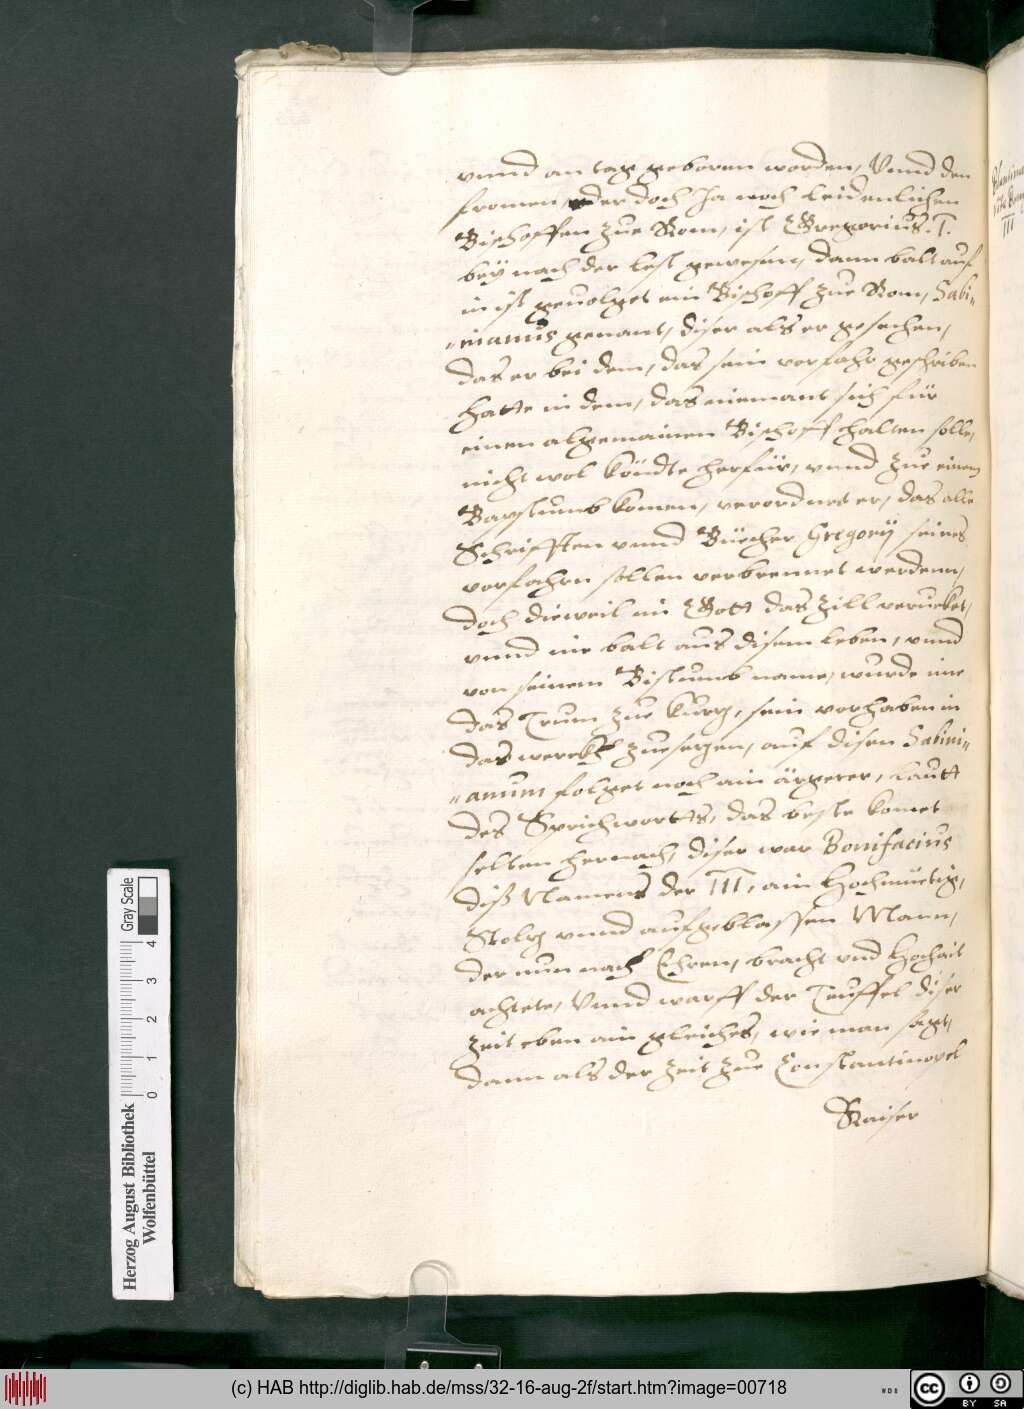 vnnd an tag geboren worden, Vnnd den
fromen, oder doch Ja noch leidenlichen
Bischoffen zue Rom, ist Gregorius .I.
bey nach der lest gewesen, dann balt auf
in ist geuolget ein Bischoff zue Rom, Sabi„
„nianus genant, diser als er gesechen,
das er bei dem, das sein vorfahr geschriben
hatte in dem, das niemant sich für
einen algemainen Bischoff halten solle,
nicht wol köndte herfür, vnnd zue einem
Bapstumb komen, verordnet er, das alle
Schrifften vnnd Büecher Gregorij seines
vorfahrn sollen verbrennet werdenn,
doch dieweil im Gott das zill verucket,
vnnd ine balt aus disem leben, vnnd
von seinem Bistumb name, wurde ime
das Trum zue kurz, sein vorhaben in
das werckh zuesezen, auf disen Sabini„
„anum folget noch ain ärgerer, lautt
des Sprichwortts, das beste komet
selten hernach, diser war Bonifacius
diß Namens der III, ain Hochmüetig,
Stolz vnnd aufgeblassen Mann,
der nun nach Ehren, bracht vnd Hochait
achtete, Vnnd warff der Teuffel diser
zeit eben ain gleiches, wie man sagt,
dann als der zeit zue Constantinopel
Kaiser
III
Herzog August Bibliothek
Wolfenbüttel
0 1 2 3 4
Gray Scale
(c) HAB http://diglib.hab.de/mss/32-16-aug-2f/start.htm?image=00718
WDB
CC BY SA